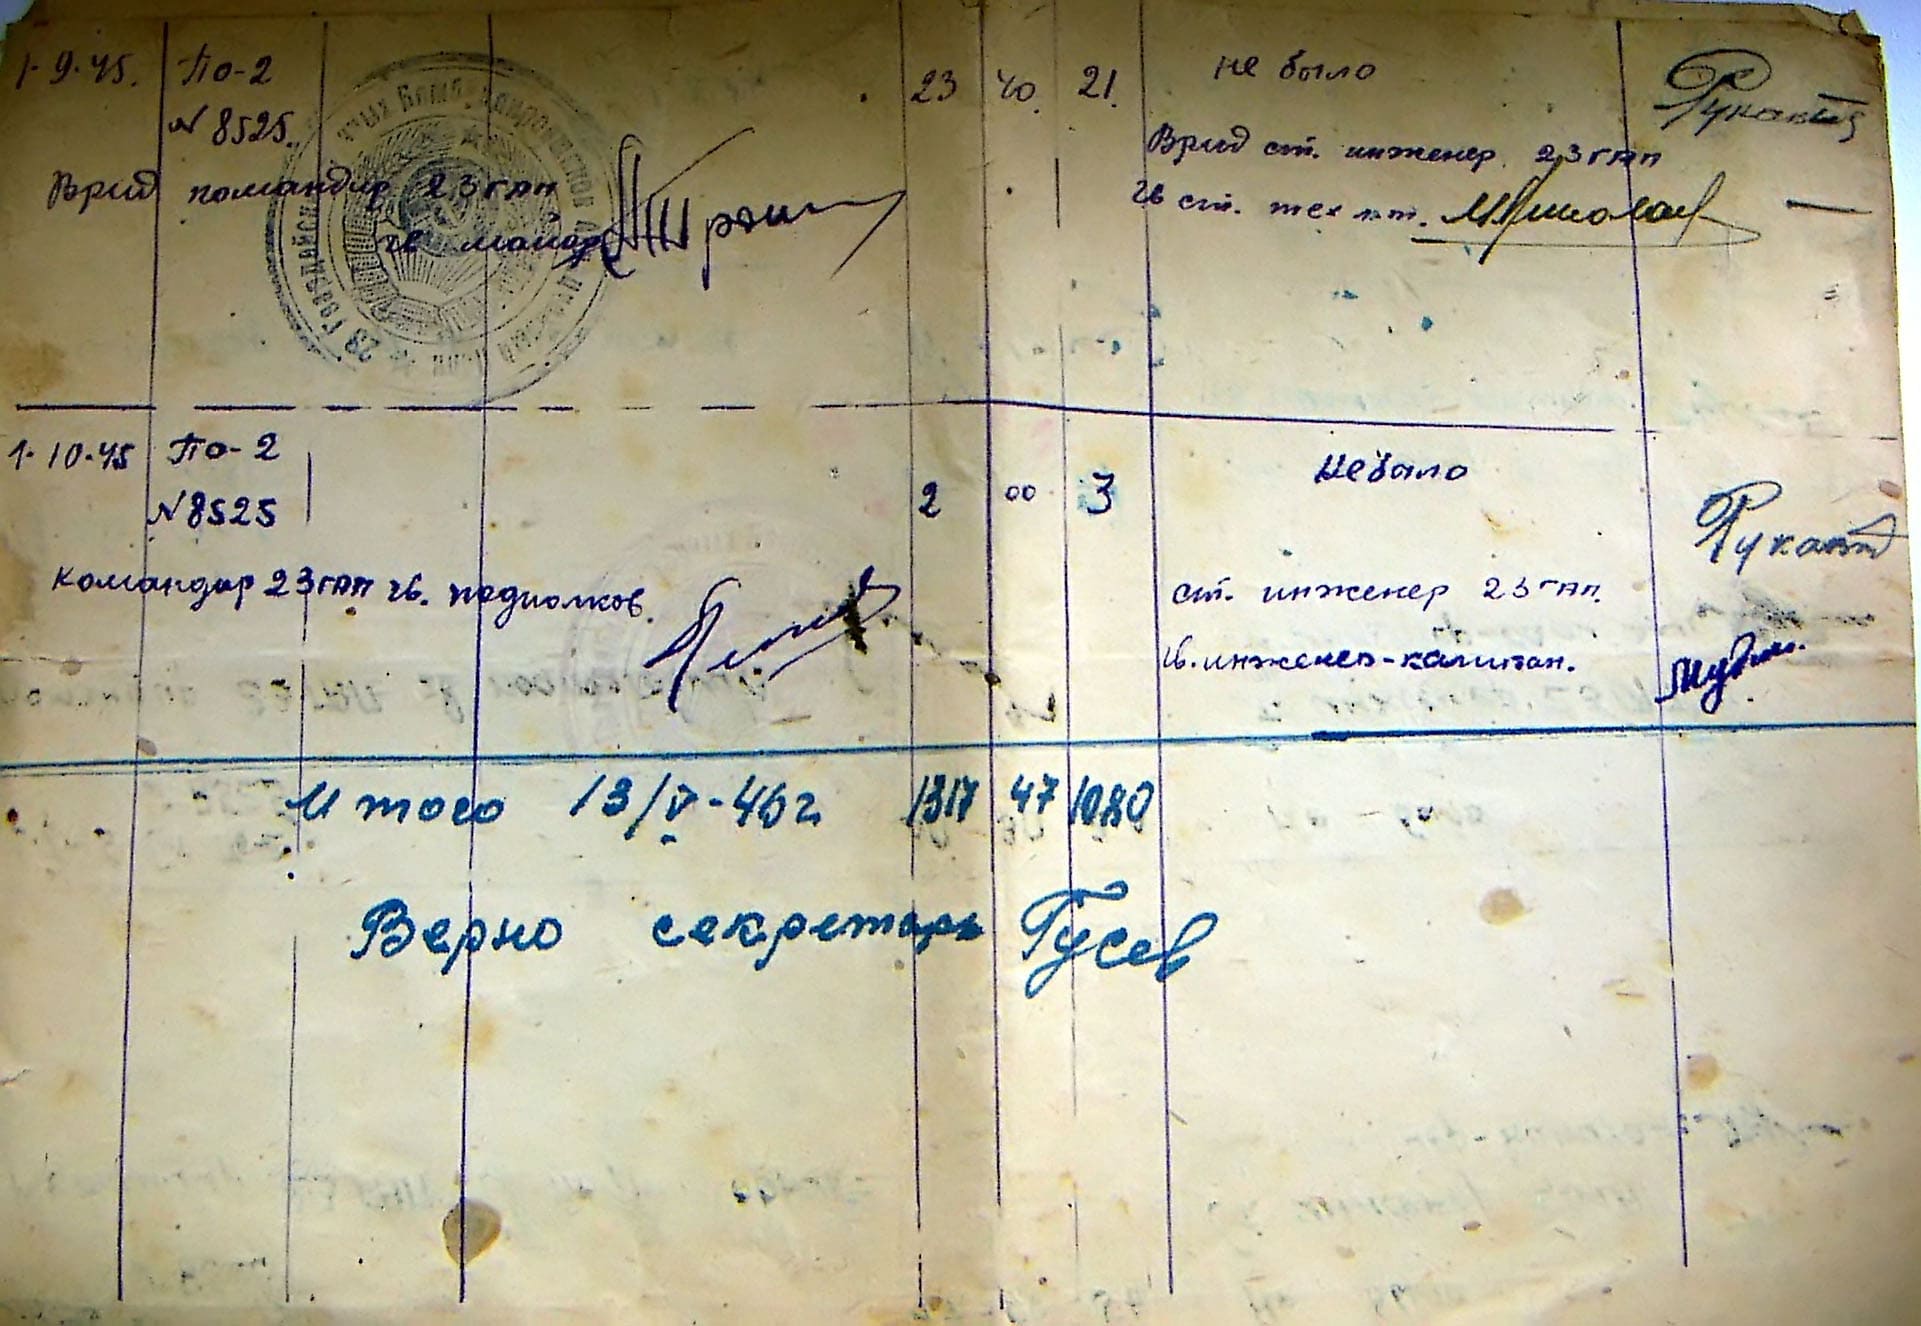 1-9-45. По-2 23 40. 21. не было
N 8525.
Врид командир 23 гап
гв майор
Врид ст. инженер 23 гап
гв ст. тех лт.
1-10-45 По-2 2 00 3 не было
N 8525
командир 23 гап гв. подполков.
ст. инженер 23 гап.
гв. инженер-капитан.
Итого 13/V-46г 1317 47 1080
Верно секретарь Гусев